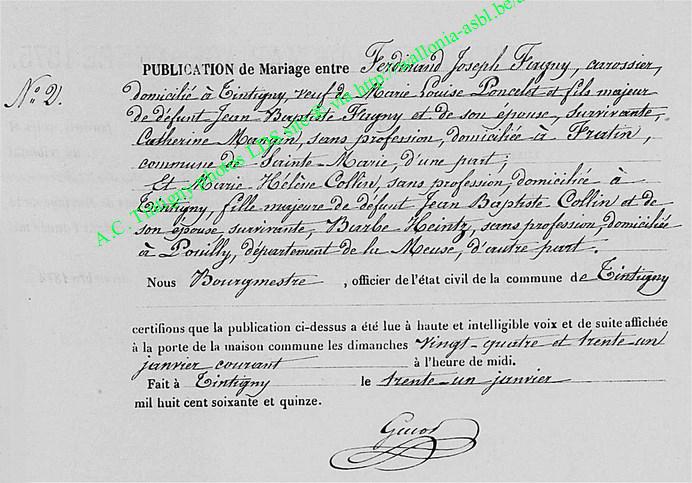 A.C. Tintigny Photos LDS site via http://wallonia-asbl.be/a
No. 2.
PUBLICATION de Mariage entre Ferdinand Joseph Fugny, carrossier,
domicilié à Tintigny, veuf de Marie Louise Poncelet et fils majeur
de défunt Jean Baptiste Fugny et de son épouse, survivante,
Catherine Mangin, sans profession, domiciliée à Fratin,
commune de Sainte-Marie, d'une part;
Et Marie Hélène Collin, sans profession, domiciliée à
Tintigny, fille majeure de défunt Jean Baptiste Collin et de
son épouse survivante, Barbe Heintz, sans profession, domiciliée
à Pouilly, département de la Meuse, d'autre part.
Nous Bourgmestre, officier de l'état civil de la commune de Tintigny
certifions que la publication ci-dessus a été lue à haute et intelligible voix et de suite affichée
à la porte de la maison commune les dimanches vingt-quatre et trente-un
janvier courant à l'heure de midi.
Fait à Tintigny le trente-un janvier
mil huit cent soixante et quinze.